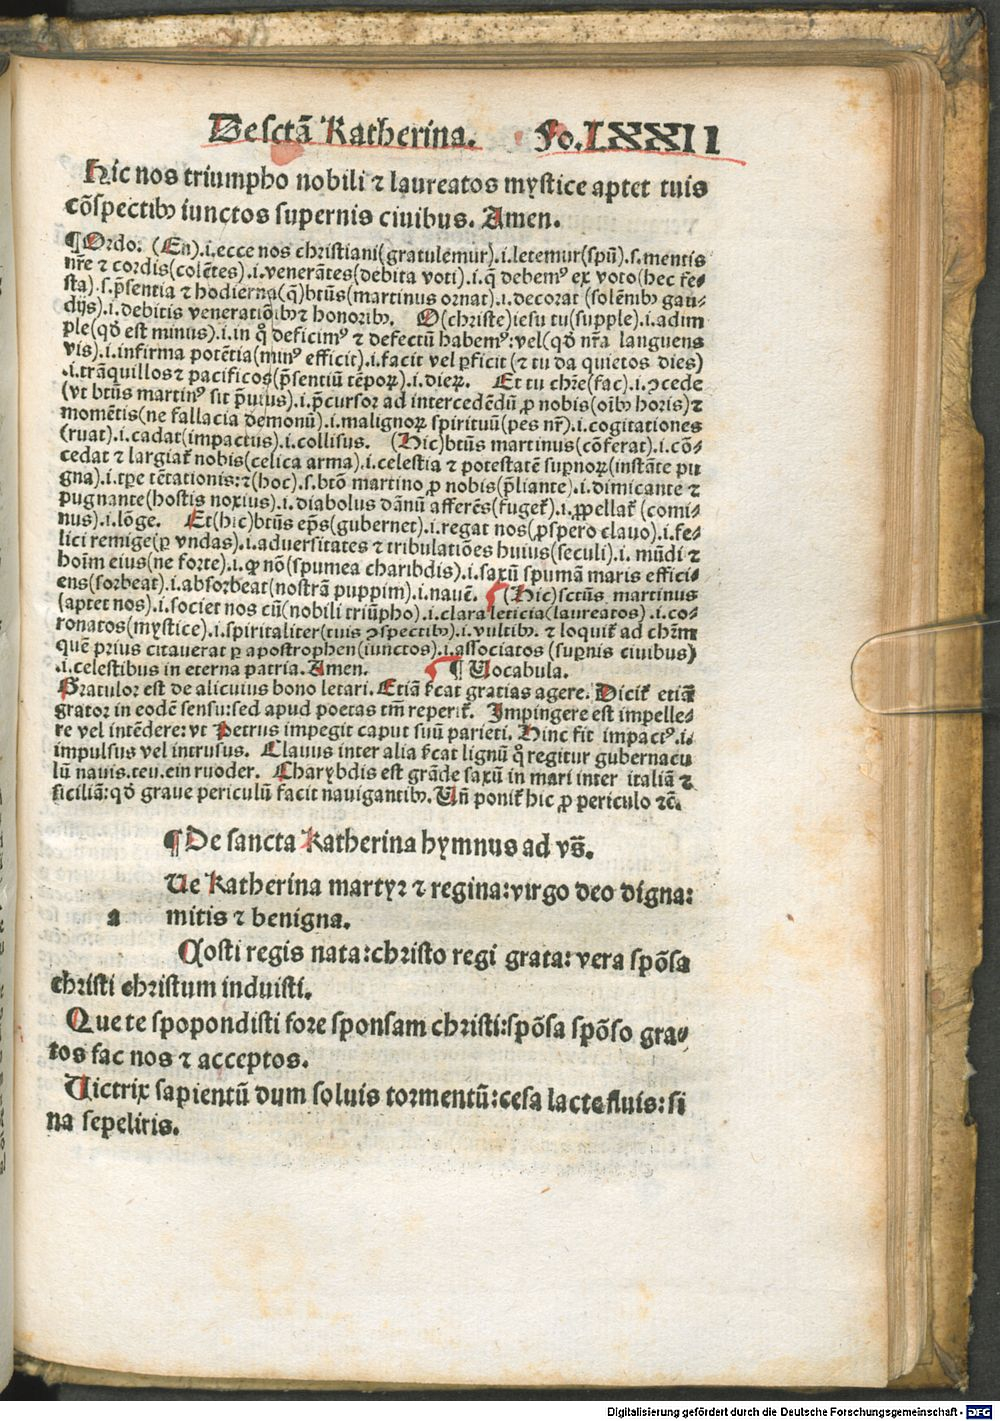 De sctā Katherina. Fo. LXXII
Hic nos triumpho nobili ⁊ laureatos mystice aptet tuis
cōspectibꝰ iunctos supernis ciuibus. Amen.
¶ Ordo. (En).i.ecce nos christiani(gratulemur).i.letemur(spū).s.mentis
nr̄e ⁊ cordis(colētes).i.venerātes(debita voti).i.q̄ debemꝰ ex voto(hec fe-
sta).s.p̄sentia ⁊ hodierna(q̄)btūs(martinus ornat).i.decorat (solēnibꝰ gau-
dijs).i.debitis veneratiōibꝰ⁊ honoribꝰ. O(christe)iesu tu(supple).i.adim
ple(qd̄ est minus).i.in q̄ deficimꝰ ⁊ defectū habemꝰ:vel(qd̄ nr̄a languens
vis).i.infirma potētia(minꝰ efficit).i.facit vel ꝑficit (⁊ tu da quietos dies)
.i.trāquillos⁊ pacificos(p̄sentiū tēpoꝝ).i.dieꝝ. Et tu chr̄e(fac).i.ɔcede
(vt btūs martinꝰ sit p̄uius).i.p̄cursor ad intercedēdū ꝓ nobis(oībꝰ horis)⁊
momētis(ne fallacia demonū).i.malignoꝝ spirituū(pes nr̄).i.cogitationes
(ruat).i.cadat(impactus).i.collisus. (Hic)btūs martinus(cōferat).i.cō-
cedat ⁊ largiat᷑ nobis(celica arma).i.celestia ⁊ potestatē suꝑnoꝝ(instāte pu
gna).i.tꝑe tētationis:⁊(hoc).s.btō martino ꝓ nobis(p̄liante).i.dimicante ⁊
pugnante(hostis noxius).i.diabolus dānū afferēs(fuget᷑).i.ꝓpellat᷑ (comi-
nus).i.lōge. Et(hic)btūs ep̄s(gubernet).i.regat nos(ꝓspero clauo).i.fe-
lici remige(ꝑ vndas).i.aduersitates ⁊ tribulatiōes huius(seculi).i. mūdi ⁊
hoīm eius(ne forte).i.ꝙ nō(spumea charibdis).i.saxū spumā maris effici-
ens(sorbeat).i.absorbeat(nostrā puppim).i.nauē. (Hic)sctūs martinus
(aptet nos).i.societ nos cū(nobili triūpho).i.clara leticia(laureatos).i.co-
ronatos(mystice).i.spiritaliter(tuis ɔspectibꝰ).i.vultibꝰ. ⁊ loquit᷑ ad chr̄m
quē prius citauerat ꝑ apostrophen(iunctos).i.associatos (suꝑnis ciuibus)
.i.celestibus in eterna patria. Amen. ¶ Vocabula.
Gratulor est de alicuius bono letari. Etiā ſcat gratias agere. Dicit᷑ etiā
grator in eodē sensu:sed apud poetas tm̄ reperit᷑. Impingere est impelle-
re vel intēdere: vt Petrus impegit caput suū parieti. Hinc fit impactꝰ.i.
impulsus vel intrusus. Clauus inter alia ſcat lignū q̄ regitur gubernacu
lū nauis.teu.ein ruoder. Charybdis est grāde saxū in mari inter italiā ⁊
siciliā:qd̄ graue periculū facit nauigantibꝰ. Vn̄ ponit᷑ hic ꝓ periculo ⁊c̄.
¶ De sancta Katherina hymnus ad vs̄.
Ue Katherina martyꝛ ⁊ regina:virgo deo digna:
a mitis ⁊ benigna.
Costi regis nata:christo regi grata: vera spōsa
christi christum induisti.
Que te spopondisti fore sponsam christi:spōsa spōso gra-
tos fac nos ⁊ acceptos.
Uictrix sapientū dum soluis tormentū:cesa lacte fluis:si
na sepeliris.
Digitalisierung gefördert durch die Deutsche Forschungsgemeinschaft - DFG